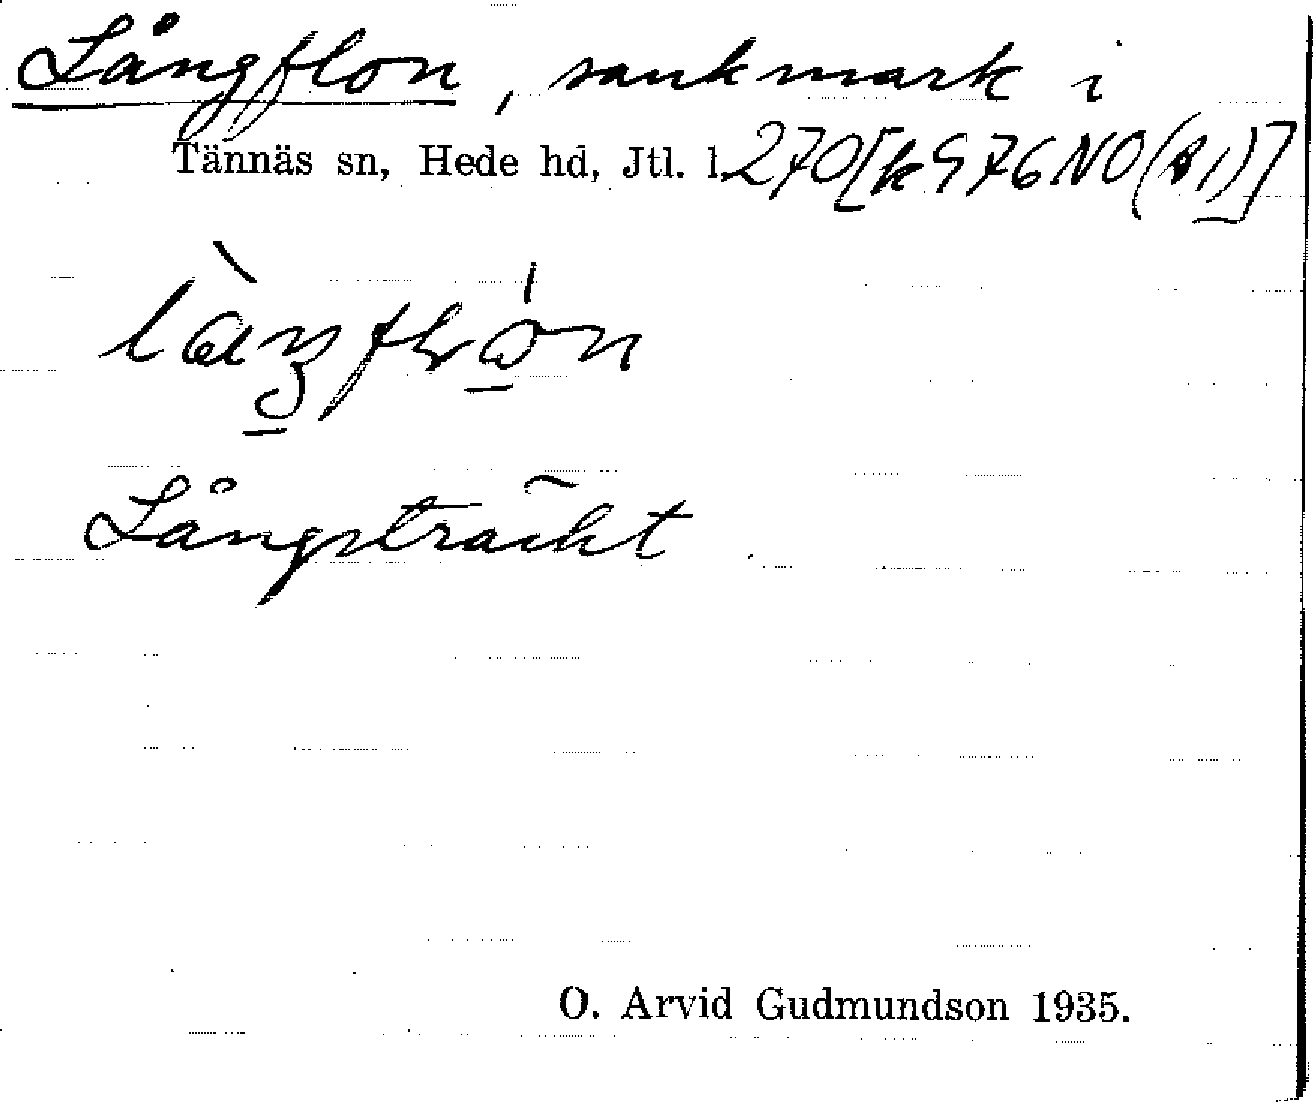 Långflon, sankmark i
Tännäs sn, Hede hd, Jtl. l. 270[k 976 NO(A1)]
Långsträckt
O. Arvid Gudmundson 1935.